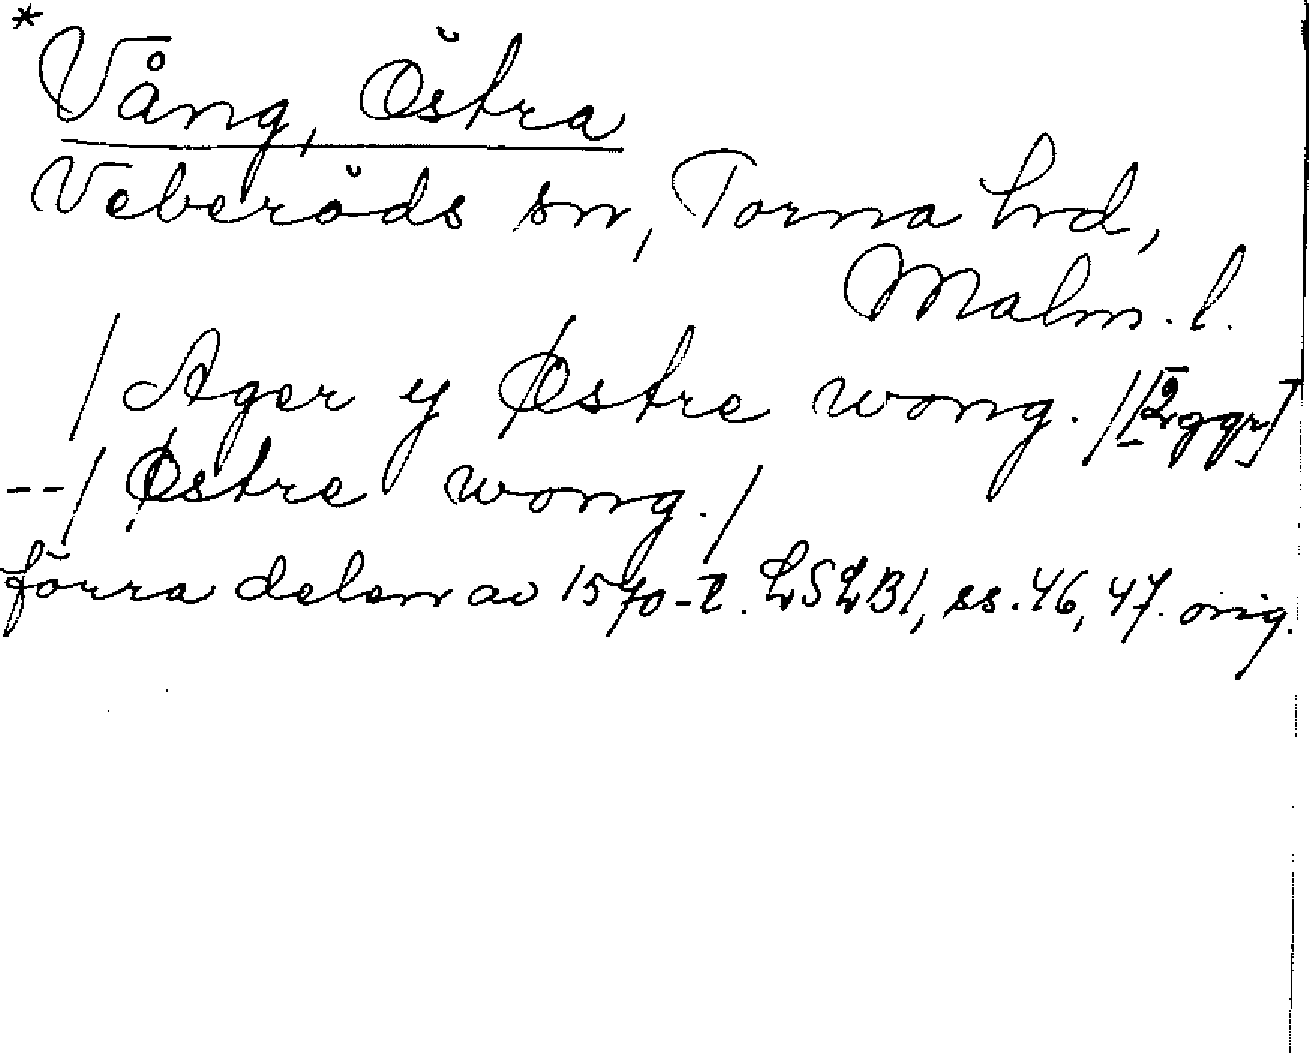 *Vång, Östra
Veberöds sn, Torna hd,
Malm. l.
/ Ager y Østre wong. / [2 ggr]
--/ Østre wong. /
förra delen av 1570-t. LSLB1, ss. 46, 47. orig.